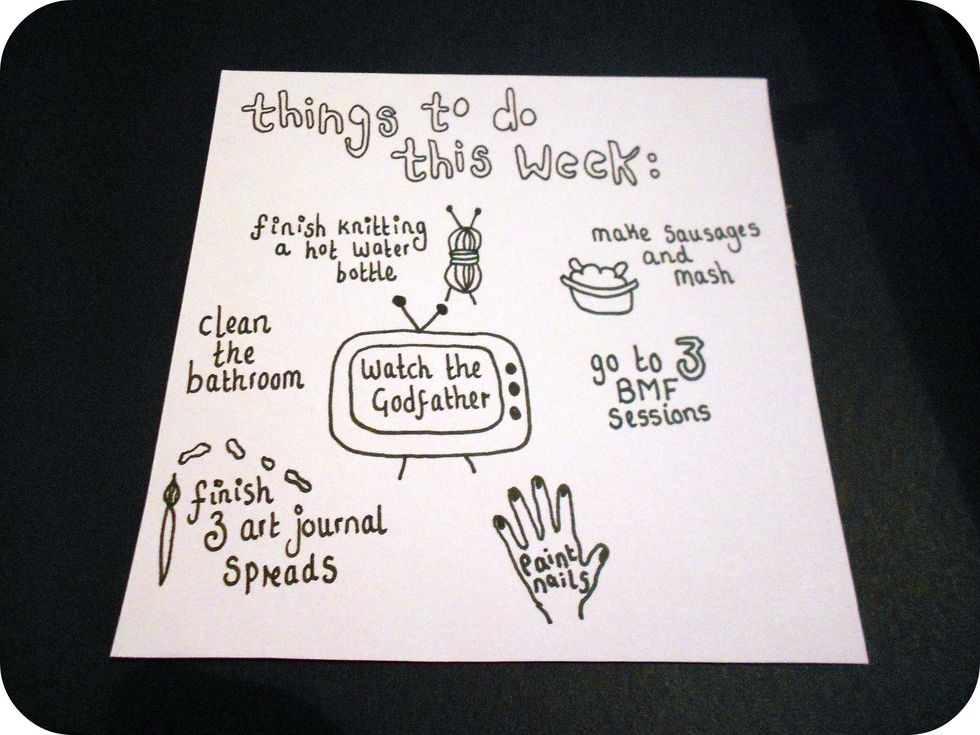 things to do
this week:
finish knitting
a hot water
bottle
make sausages
and
mash
clean
the
bathroom
watch the
Godfather
go to 3
BMF
sessions
finish
3 art journal
spreads
paint
nails